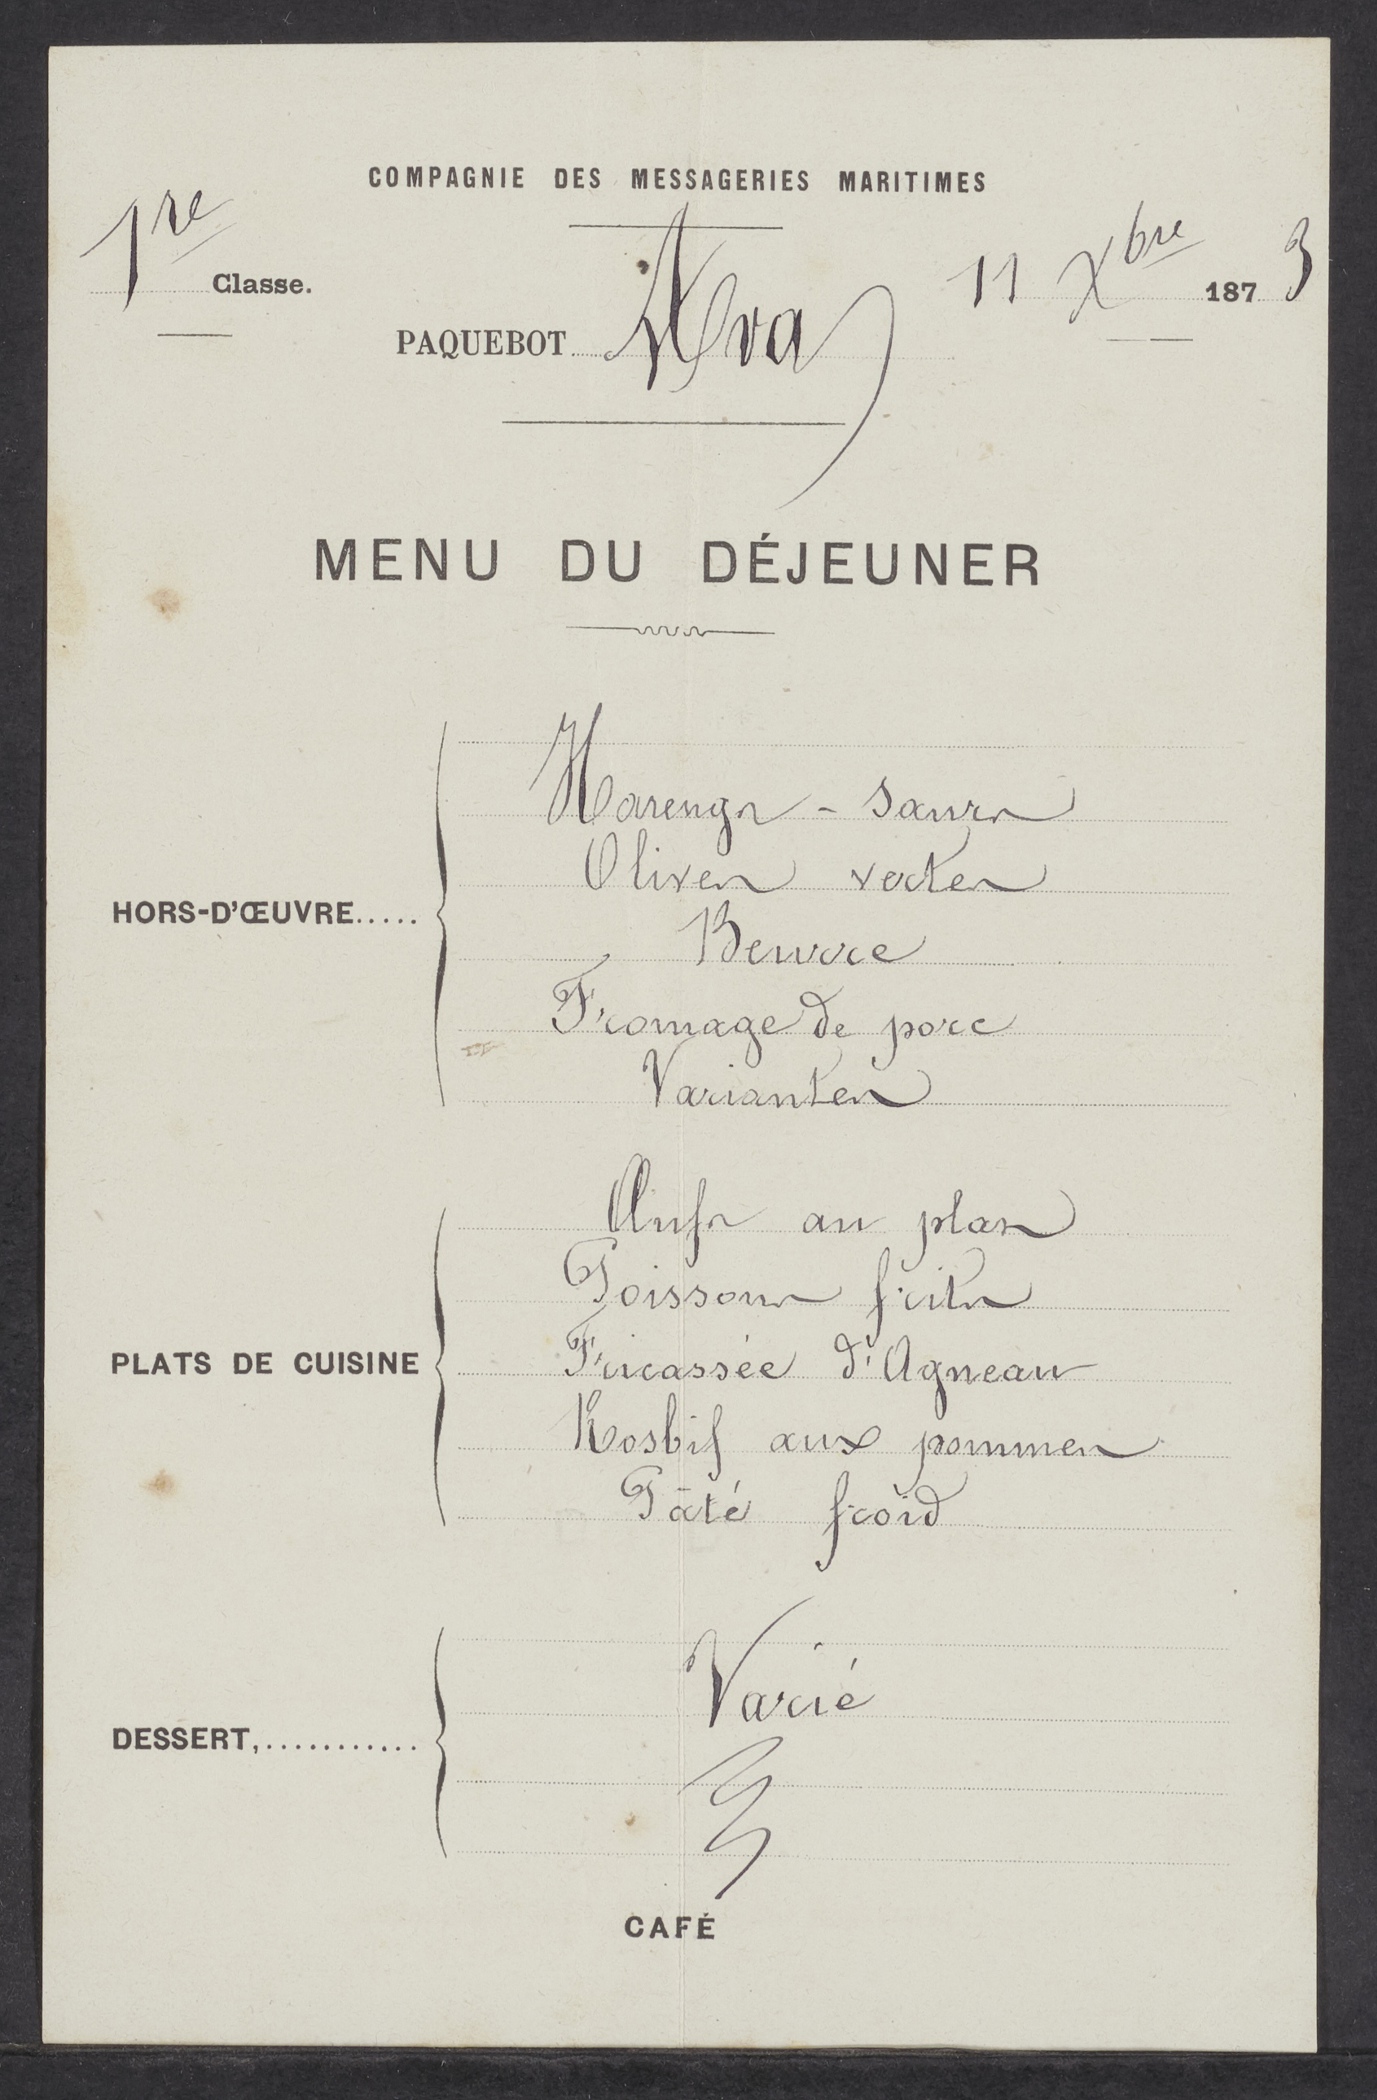 COMPAGNIE DES MESSAGERIES MARITIMES
1re Classe.
11 Xbre 1873
PAQUEBOT Ava
MENU DU DÉJEUNER
HORS-D'ŒUVRE.....
Harengs - saurs
Olives vertes
Beurre
Fromage de porc
Variantes
PLATS DE CUISINE
Œufs au plas
Poissons frits
Fricassée d'Agneau
Rosbif aux pommes
Pâté froid
DESSERT,...........
Varié
CAFÉ